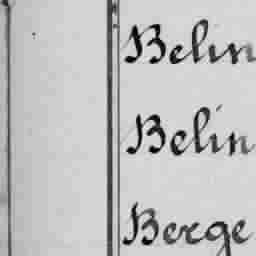 Belin
Belin
Berge